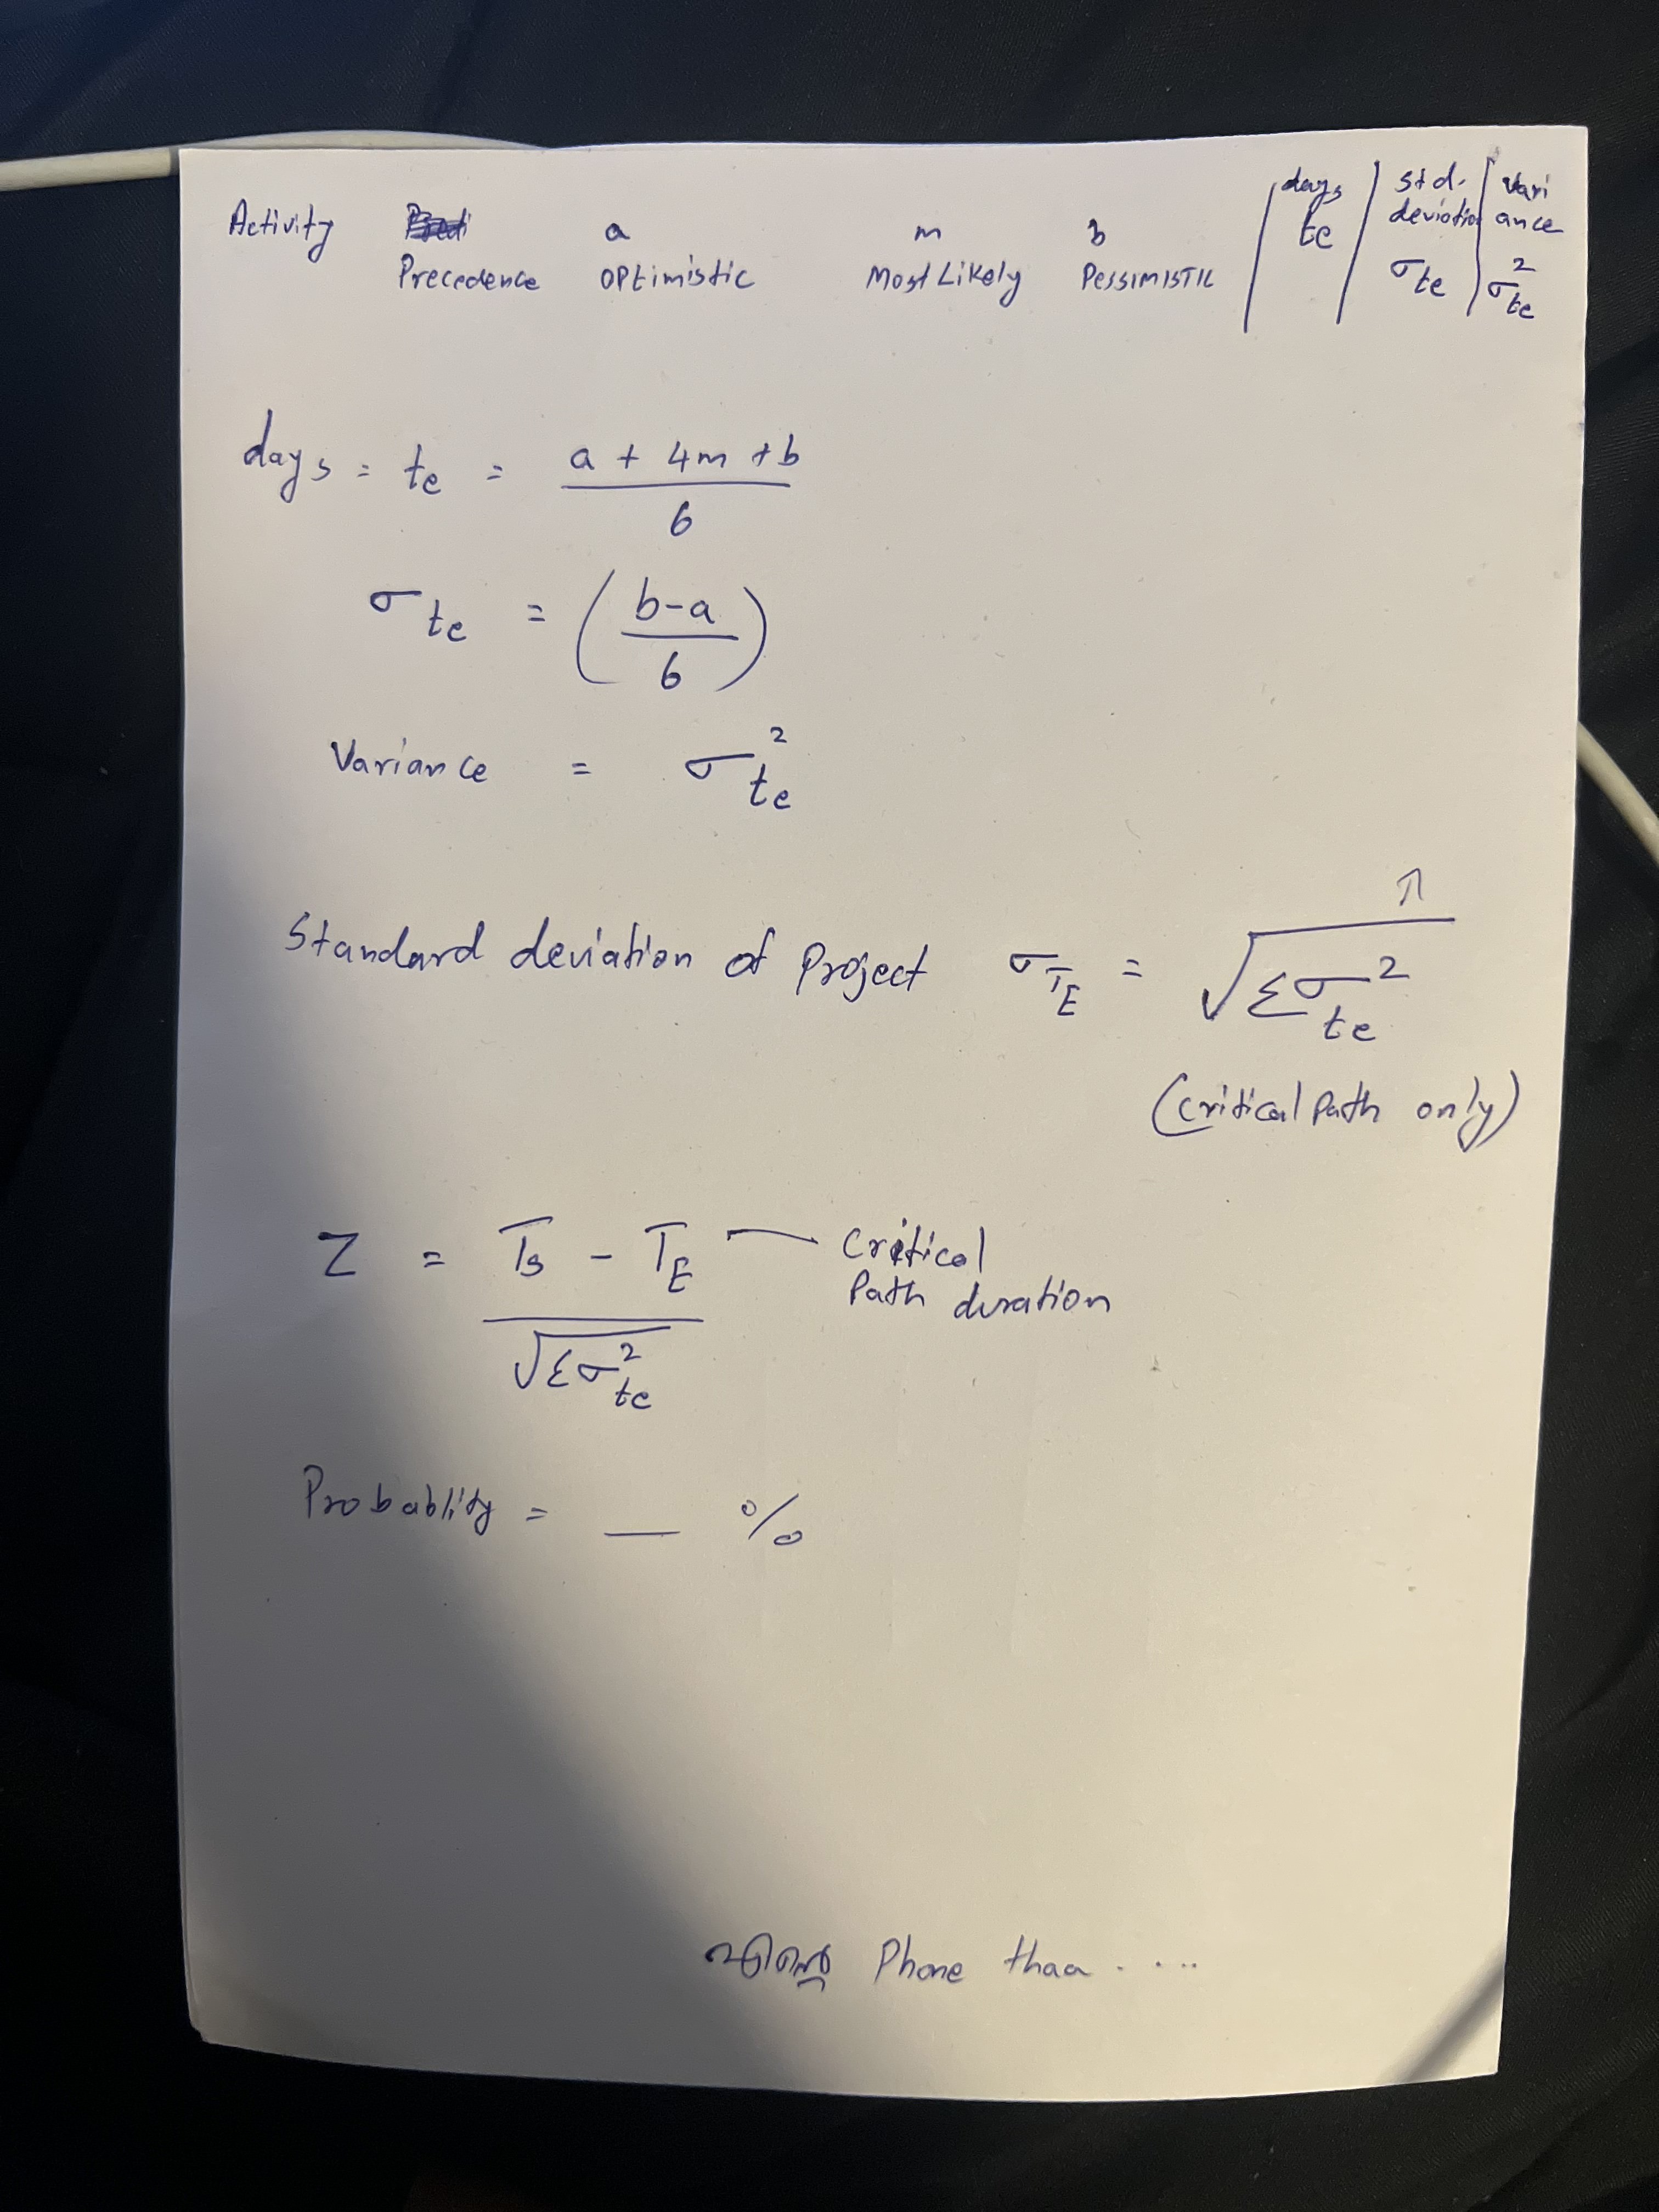 Activity Precedence a Optimistic m Most Likely b Pessimistic days te std. deviation σte Variance σ²te
days = te = (a + 4m + b) / 6
σte = ((b-a) / 6)
Variance = σ²te
Standard deviation of Project σTE = √Σσte²
(critical Path only)
Z = (Ts - TE) / √Σσ²te — Critical Path duration
Probablity = __ %
എന്റെ Phone thaa .....